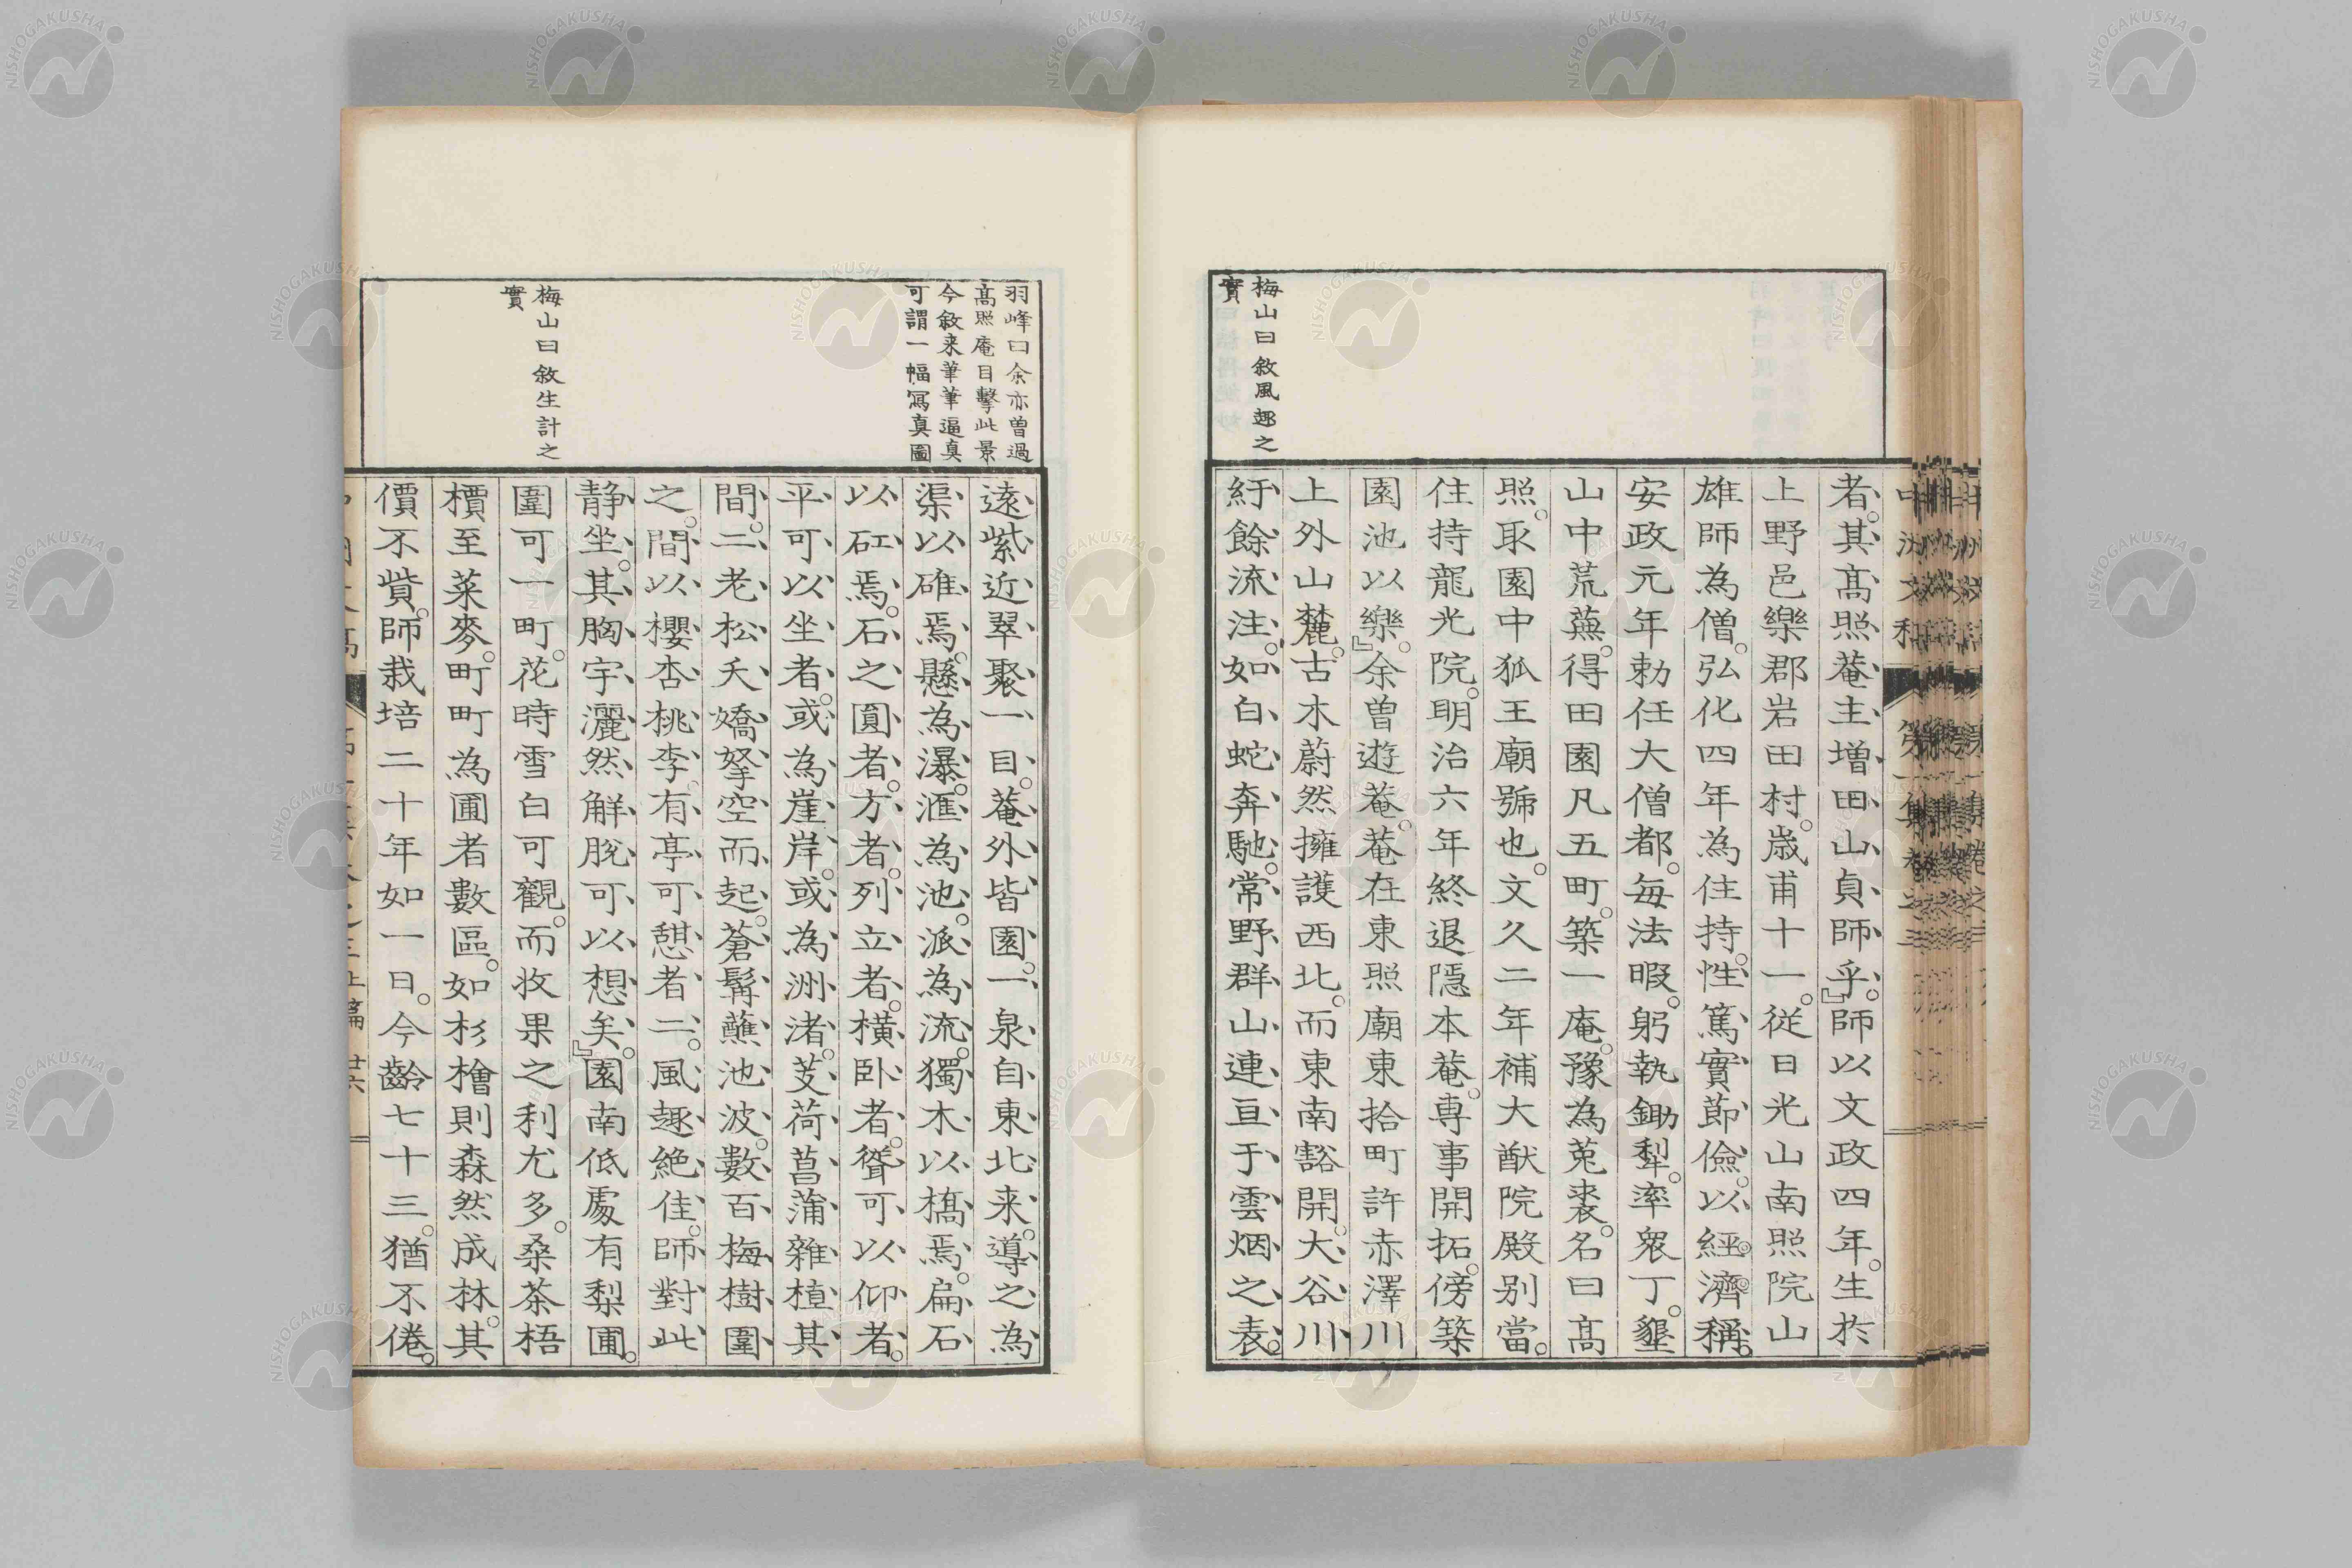 梅山曰敘風趣之
實
者。其高照菴主增田山貞師乎。』師以文政四年。生於
上野邑樂郡岩田村。歲甫十一。從日光山南照院山
雄師為僧。弘化四年為住持。性篤實節儉。以經濟稱。
安政元年勅任大僧都。每法暇。躬執鋤犁。率眾丁。墾
山中荒蕪。得田園凡五町。築一庵。豫為菟裘。名曰高
照。取園中狐王廟號也。文久二年補大猷院殿別當。
住持龍光院。明治六年終退隱本菴。專事開拓。傍築
園池以樂。』余曾遊菴。菴在東照廟東拾町許赤澤川
上外山麓。古木蔚然擁護西北。而東南豁開。大谷川
紆餘流注。如白蛇奔馳。常野群山連亘于雲烟之表。
羽峰曰余亦曾過
高照庵目擊此景
今敘来筆筆逼真
可謂一幅寫真圖
梅山曰敘生計之
實
遠紫近翠聚一目。菴外皆園。一泉自東北来。導之為
渠以碓焉。懸為瀑。滙為池。派為流。獨木以橋焉。扁石
以矼焉。石之圓者。方者。列立者。橫卧者。聳可以仰者。
平可以坐者。或為崖岸。或為洲渚。芰荷菖蒲雜植其
間。二老松夭嬌拏空而起。蒼髯蘸池波。數百梅樹圍
之。間以櫻杏桃李。有亭可憇者二。風趣絶佳。師對此
静坐。其胸宇灑然解脫可以想矣。』園南低處有梨圃。
圍可一町。花時雪白可觀。而收果之利尤多。桑茶梧
檟至菜麥。町町為圃者數區。如杉檜則森然成林。其
價不貲。師栽培二十年如一日。今齡七十三。猶不倦。